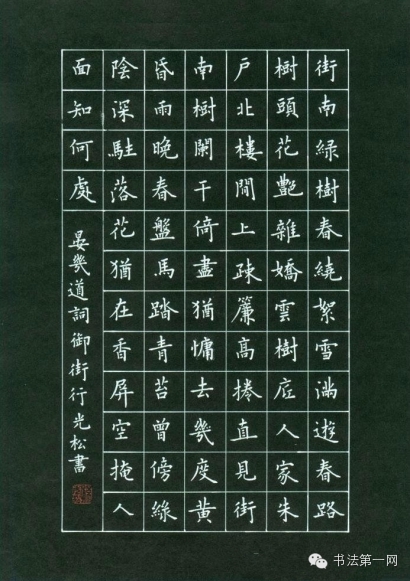 街南綠樹春繞絮雪滿遊春路
樹頭花艷雜嬌雲樹底人家朱
戶北樓閒上疎簾高捲直見街
南樹闌干倚盡猶慵去幾度黃
昏雨晚春盤馬踏青苔曾傍綠
陰深駐落花猶在香屏空掩人
面知何處
晏幾道詞御街行光松書
书法第一网